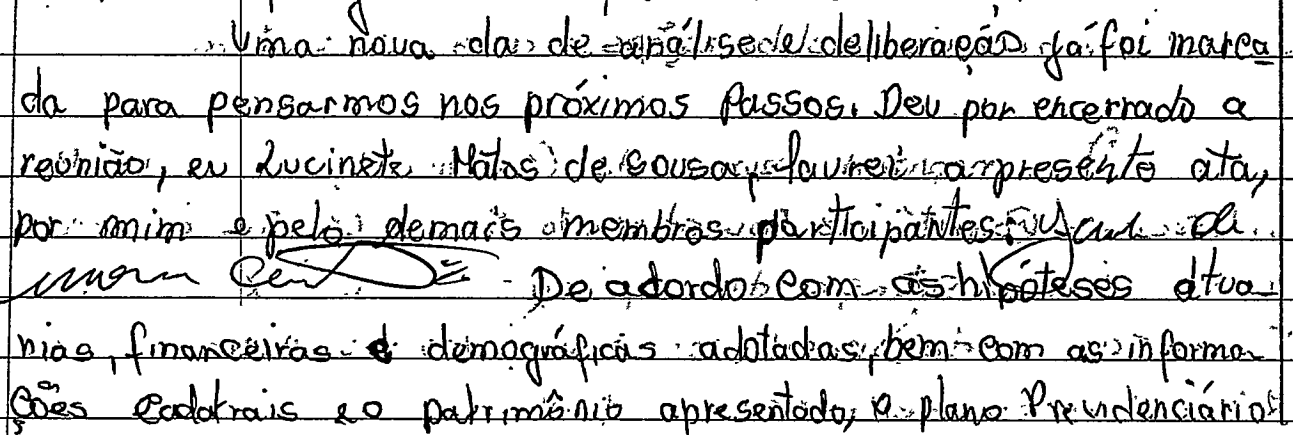 Uma nova da de análise de deliberação já foi marca
da para pensarmos nos próximos passos. Deu por encerrado a
reunião, eu Lucinete Matos de Sousa, laurei a presente ata,
por mim e pelo demais membros participantes.
De adordo com as hipóteses atua
rias, financeiras e demográficas adotadas, bem com as informa
ções Cadatrais e o patrimônio apresentado, o plano Previdenciário